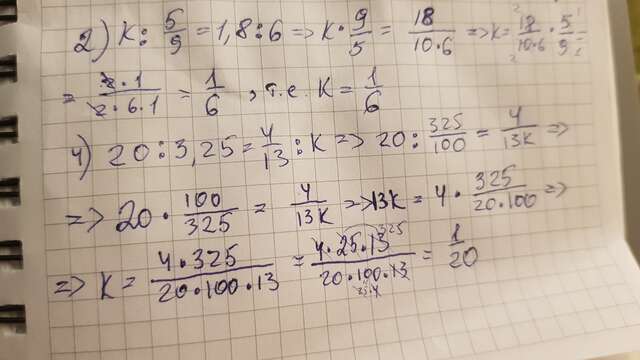 2) K : 5/9 = 1,8 : 6 => K · 9/5 = 18/(10·6) => K = 18/(10·6) · 5/9 =
= (2·1)/(2·6·1) = 1/6 , т.е. K = 1/6
4) 20 : 3,25 = 4/13 : K => 20 : 325/100 = 4/(13K) =>
=> 20 · 100/325 = 4/(13K) => 13K = 4 · 325/(20·100) =>
=> K = (4·325)/(20·100·13) = (4·25·13)/(20·100·13) = 1/20